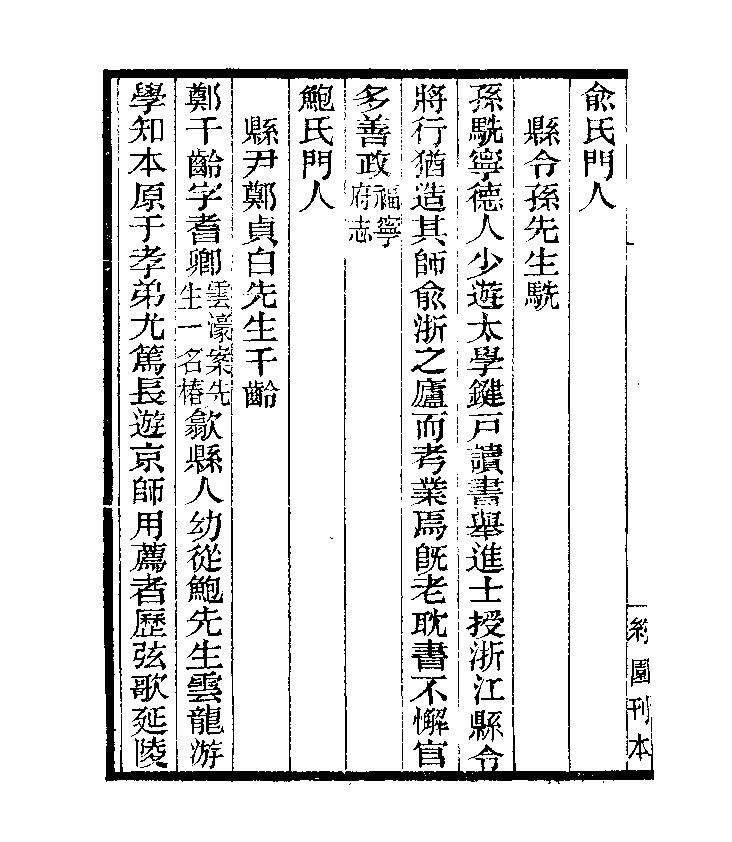 俞氏門人
縣令孫先生駪
孫駪寧德人少遊太學鍵戸讀書舉進士授浙江縣令
將行猶造其師俞浙之廬而考業焉旣老耽書不懈官
多善政福寧府志
鮑氏門人
縣尹鄭貞白先生千齡
鄭千齡字耆卿雲濠案先生一名椿歙縣人幼從鮑先生雲龍游
學知本原于孝弟尤篤長遊京師用薦者歷弦歌延陵
約園刊本